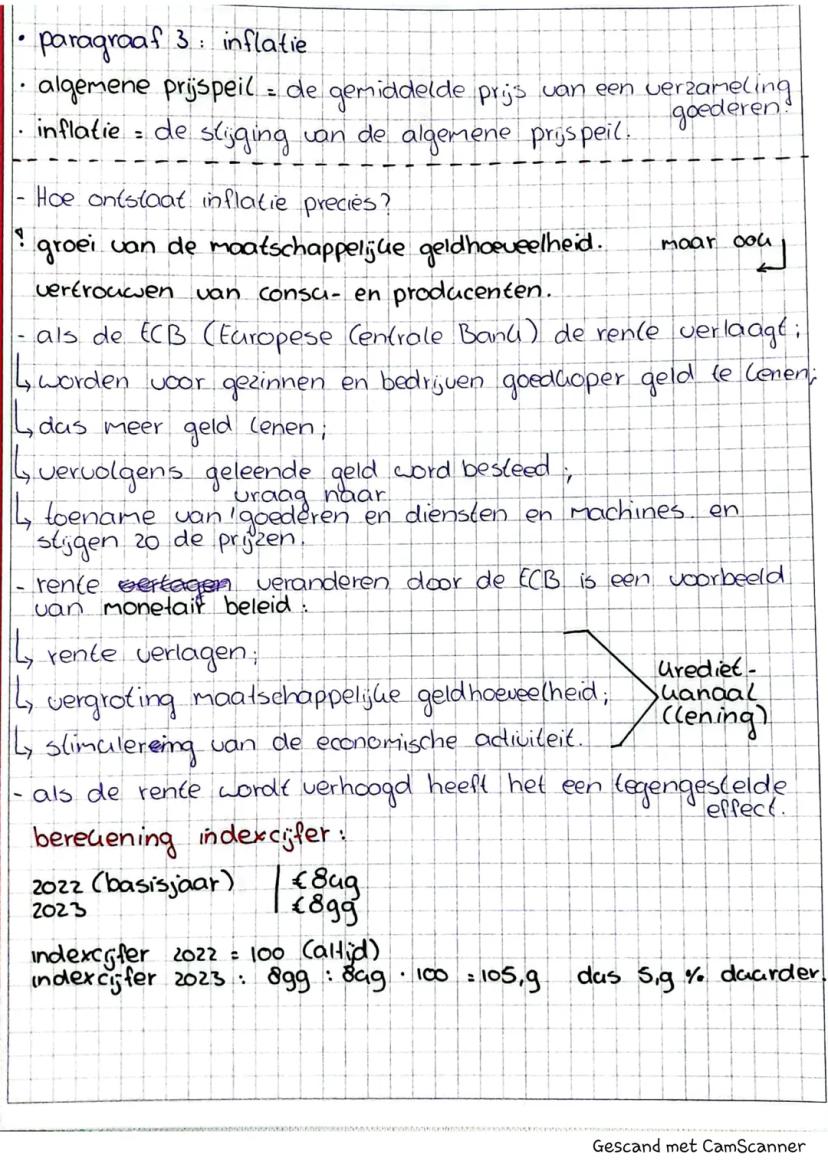 • paragraaf 3: inflatie
• algemene prijspeil = de gemiddelde prijs van een verzameling
goederen.
• inflatie = de stijging van de algemene prijspeil.
- Hoe ontstaat inflatie precies?
! groei van de maatschappelijke geldhoeveelheid. maar ook ↵
vertrouwen van consu- en producenten.
- als de ECB (Europese Centrale Bank) de rente verlaagt;
↳ worden voor gezinnen en bedrijven goedkoper geld te lenen;
↳ dus meer geld lenen;
↳ vervolgens geleende geld word besteed;
vraag naar
↳ toename van ! goederen en diensten en machines. en
stijgen zo de prijzen.
- rente veranderen door de ECB is een voorbeeld
van monetair beleid:
↳ rente verlagen;
↳ vergroting maatschappelijke geldhoeveelheid;
↳ stimulereing van de economische activiteit.
krediet-
kanaal
(lening)
- als de rente wordt verhoogd heeft het een tegengestelde
effect.
berekening indexcijfer:
2022 (basisjaar) | €849
2023 | €899
indexcijfer 2022 = 100 (altijd)
indexcijfer 2023: 899 : 849 · 100 = 105,9 dus 5,9 % duurder.
Gescand met CamScanner